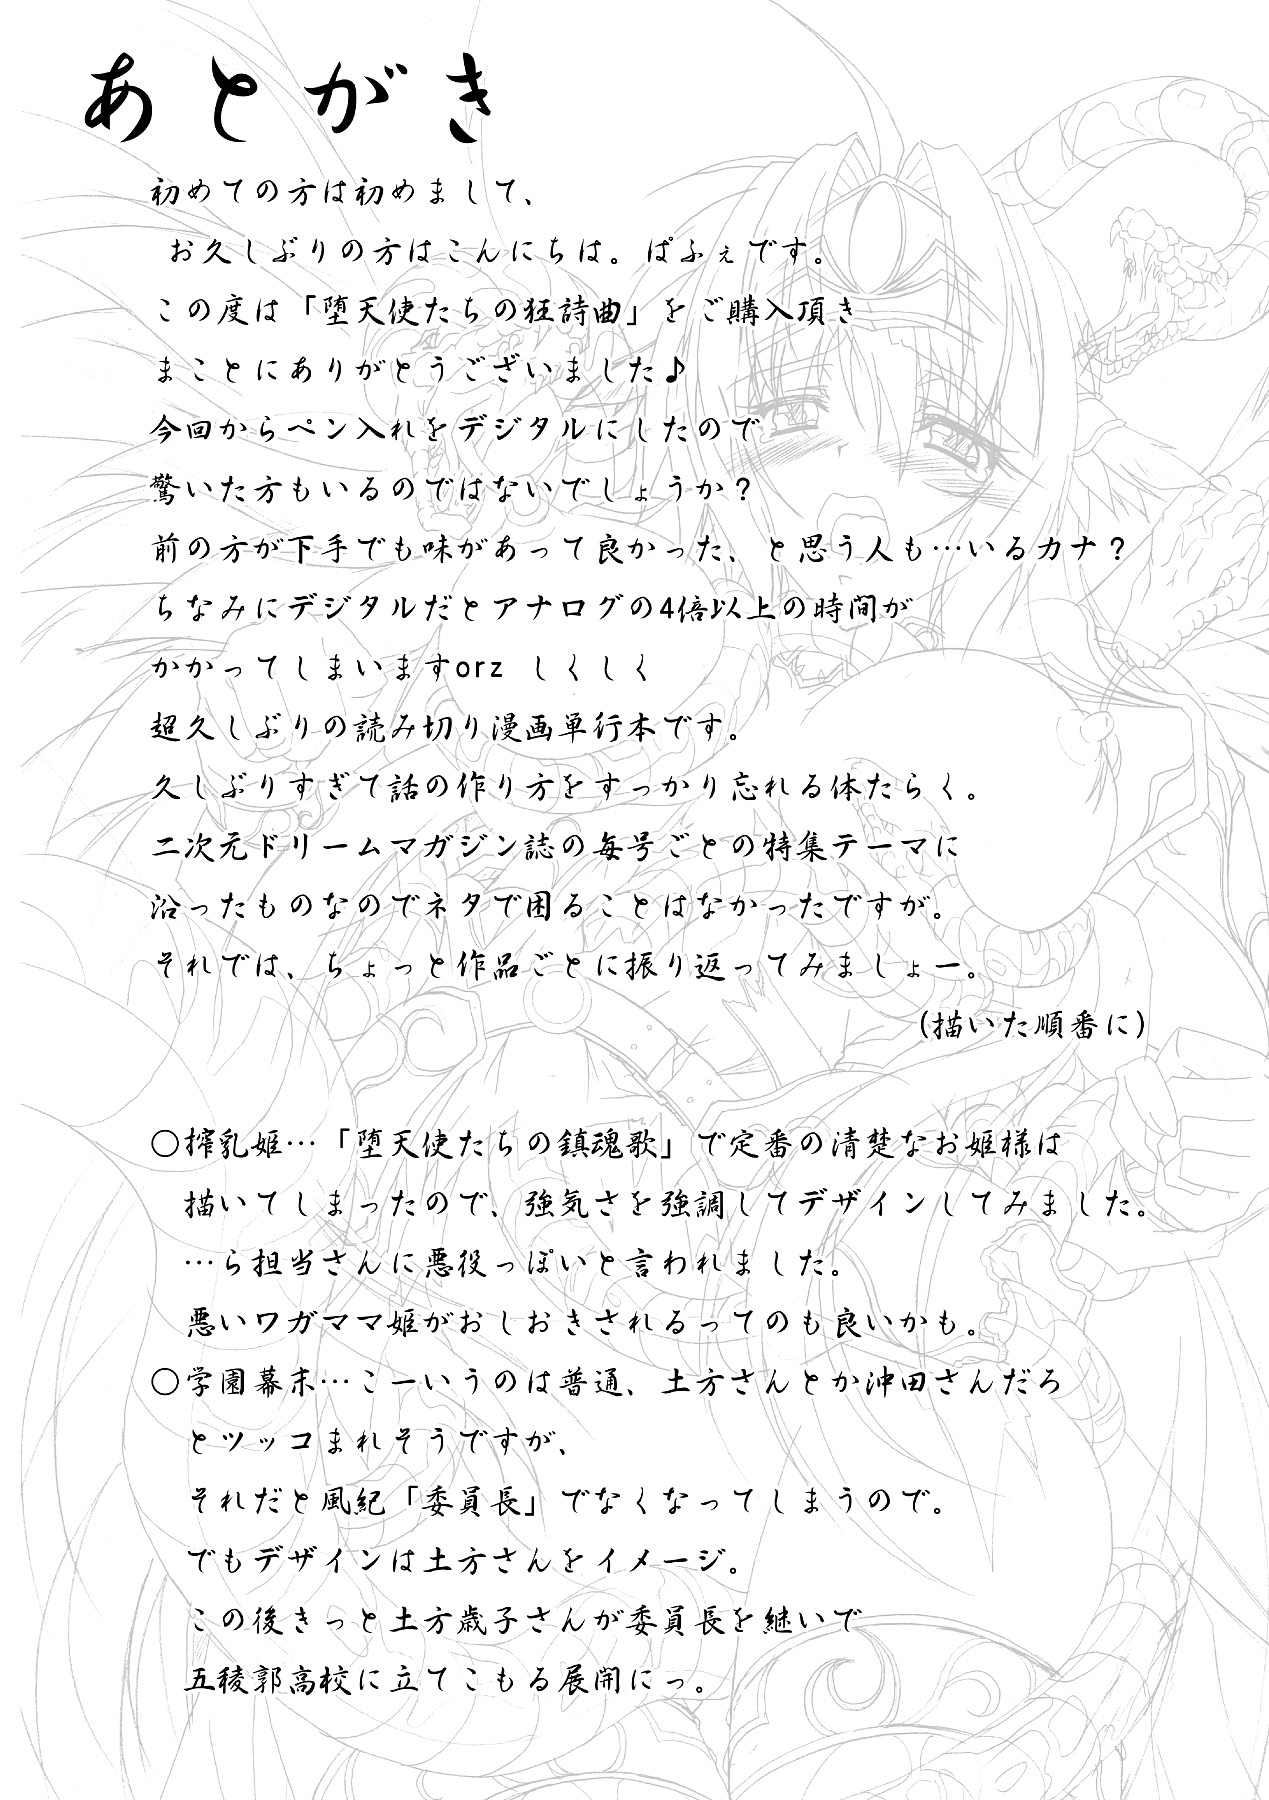 あとがき
初めての方は初めまして、
お久しぶりの方はこんにちは。ぱふぇです。
この度は「堕天使たちの狂詩曲」をご購入頂き
まことにありがとうございました♪
今回からペン入れをデジタルにしたので
驚いた方もいるのではないでしょうか？
前の方が下手でも味があって良かった、と思う人も…いるカナ？
ちなみにデジタルだとアナログの4倍以上の時間が
かかってしまいますorz　しくしく
超久しぶりの読み切り漫画単行本です。
久しぶりすぎて話の作り方をすっかり忘れる体たらく。
二次元ドリームマガジン誌の毎号ごとの特集テーマに
沿ったものなのでネタで困ることはなかったですが。
それでは、ちょっと作品ごとに振り返ってみましょー。
(描いた順番に)
○搾乳姫…「堕天使たちの鎮魂歌」で定番の清楚なお姫様は
描いてしまったので、強気さを強調してデザインしてみました。
…ら担当さんに悪役っぽいと言われました。
悪いワガママ姫がおしおきされるってのも良いかも。
○学園幕末…こーいうのは普通、土方さんとか沖田さんだろ
とツッコまれそうですが、
それだと風紀「委員長」でなくなってしまうので。
でもデザインは土方さんをイメージ。
この後きっと土方歳子さんが委員長を継いで
五稜郭高校に立てこもる展開にっ。